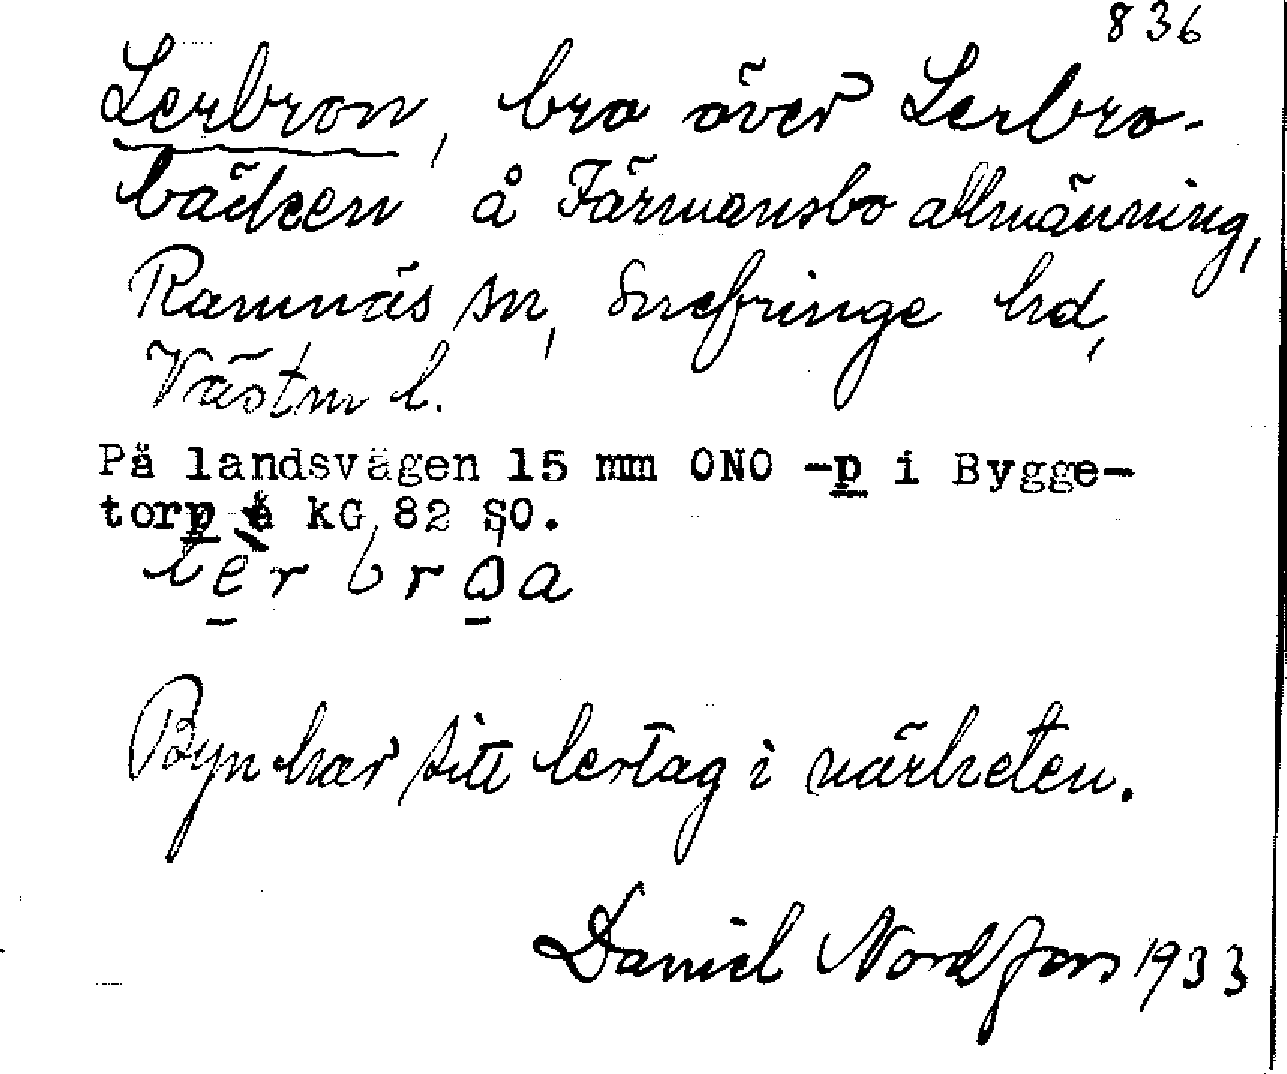 836
Lerbron, bro över Lerbro-
bäcken å Färmansbo allmänning,
Ramnäs sn, Snefringe hd,
Västm l.
På landsvägen 15 mm ONO -p i Bygge-
torp å kG 82 SO.
lerbroa
Byn har sitt lertag i närheten.
Daniel Nordfors 1933